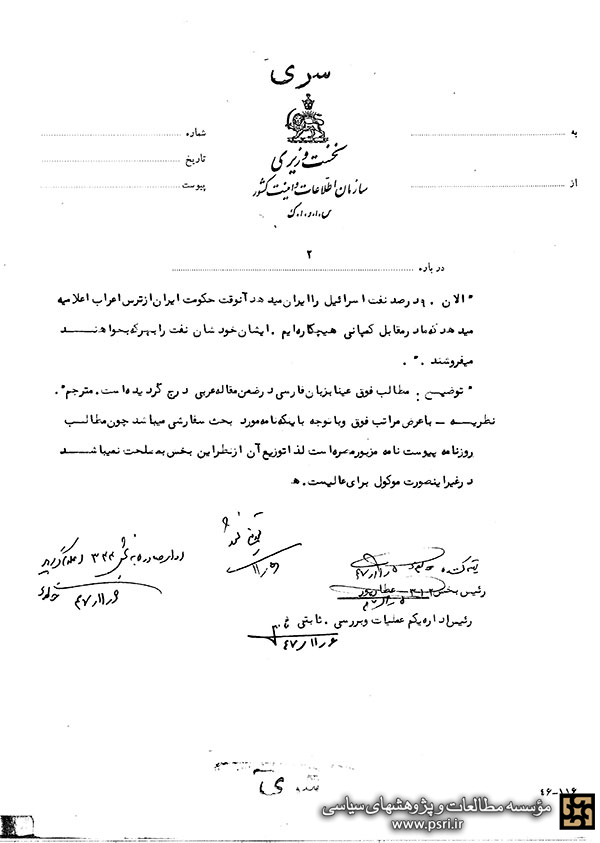 سری
نخست وزیری
سازمان اطلاعات و امنیت کشور
س.ا.و.ا.ک
به
شماره
تاریخ
از
پیوست
۲
درباره
"الان ۹۰ درصد نفت اسرائیل را ایران میدهد آنوقت حکومت ایران از ترس اعراب اعلامیه
میدهد که ما در مقابل کمپانی هیچکاره ایم . ایشان خودشان نفت را بهر که بخواهند
میفروشند . " .
" توضیح : مطالب فوق عینا بزبان فارسی در ضمن مقاله عربی درج گردیده است . مترجم " .
نظریه - با عرض مراتب فوق و با توجه باینکه نامه مورد بحث سفارشی میباشد چون مطالب
روزنامه پیوست نامه مزبور مضره است لذا توزیع آن از نظر این بخش بمصلحت نمیباشد
در غیر اینصورت موکول برای عالیست . ه
توزیع نشود
اداره صادره به بخش ۳۳۴ اعلام گردید
۶ر۱۱ر۴۷
تهیه کننده
رئیس بخش ۳۱۲ . عطارپور
رئیس اداره یکم عملیات و بررسی . ثابتی
۶ر۱۱ر۴۷
۴۶-۱۱۶
مؤسسه مطالعات و پژوهشهای سیاسی
www.psri.ir